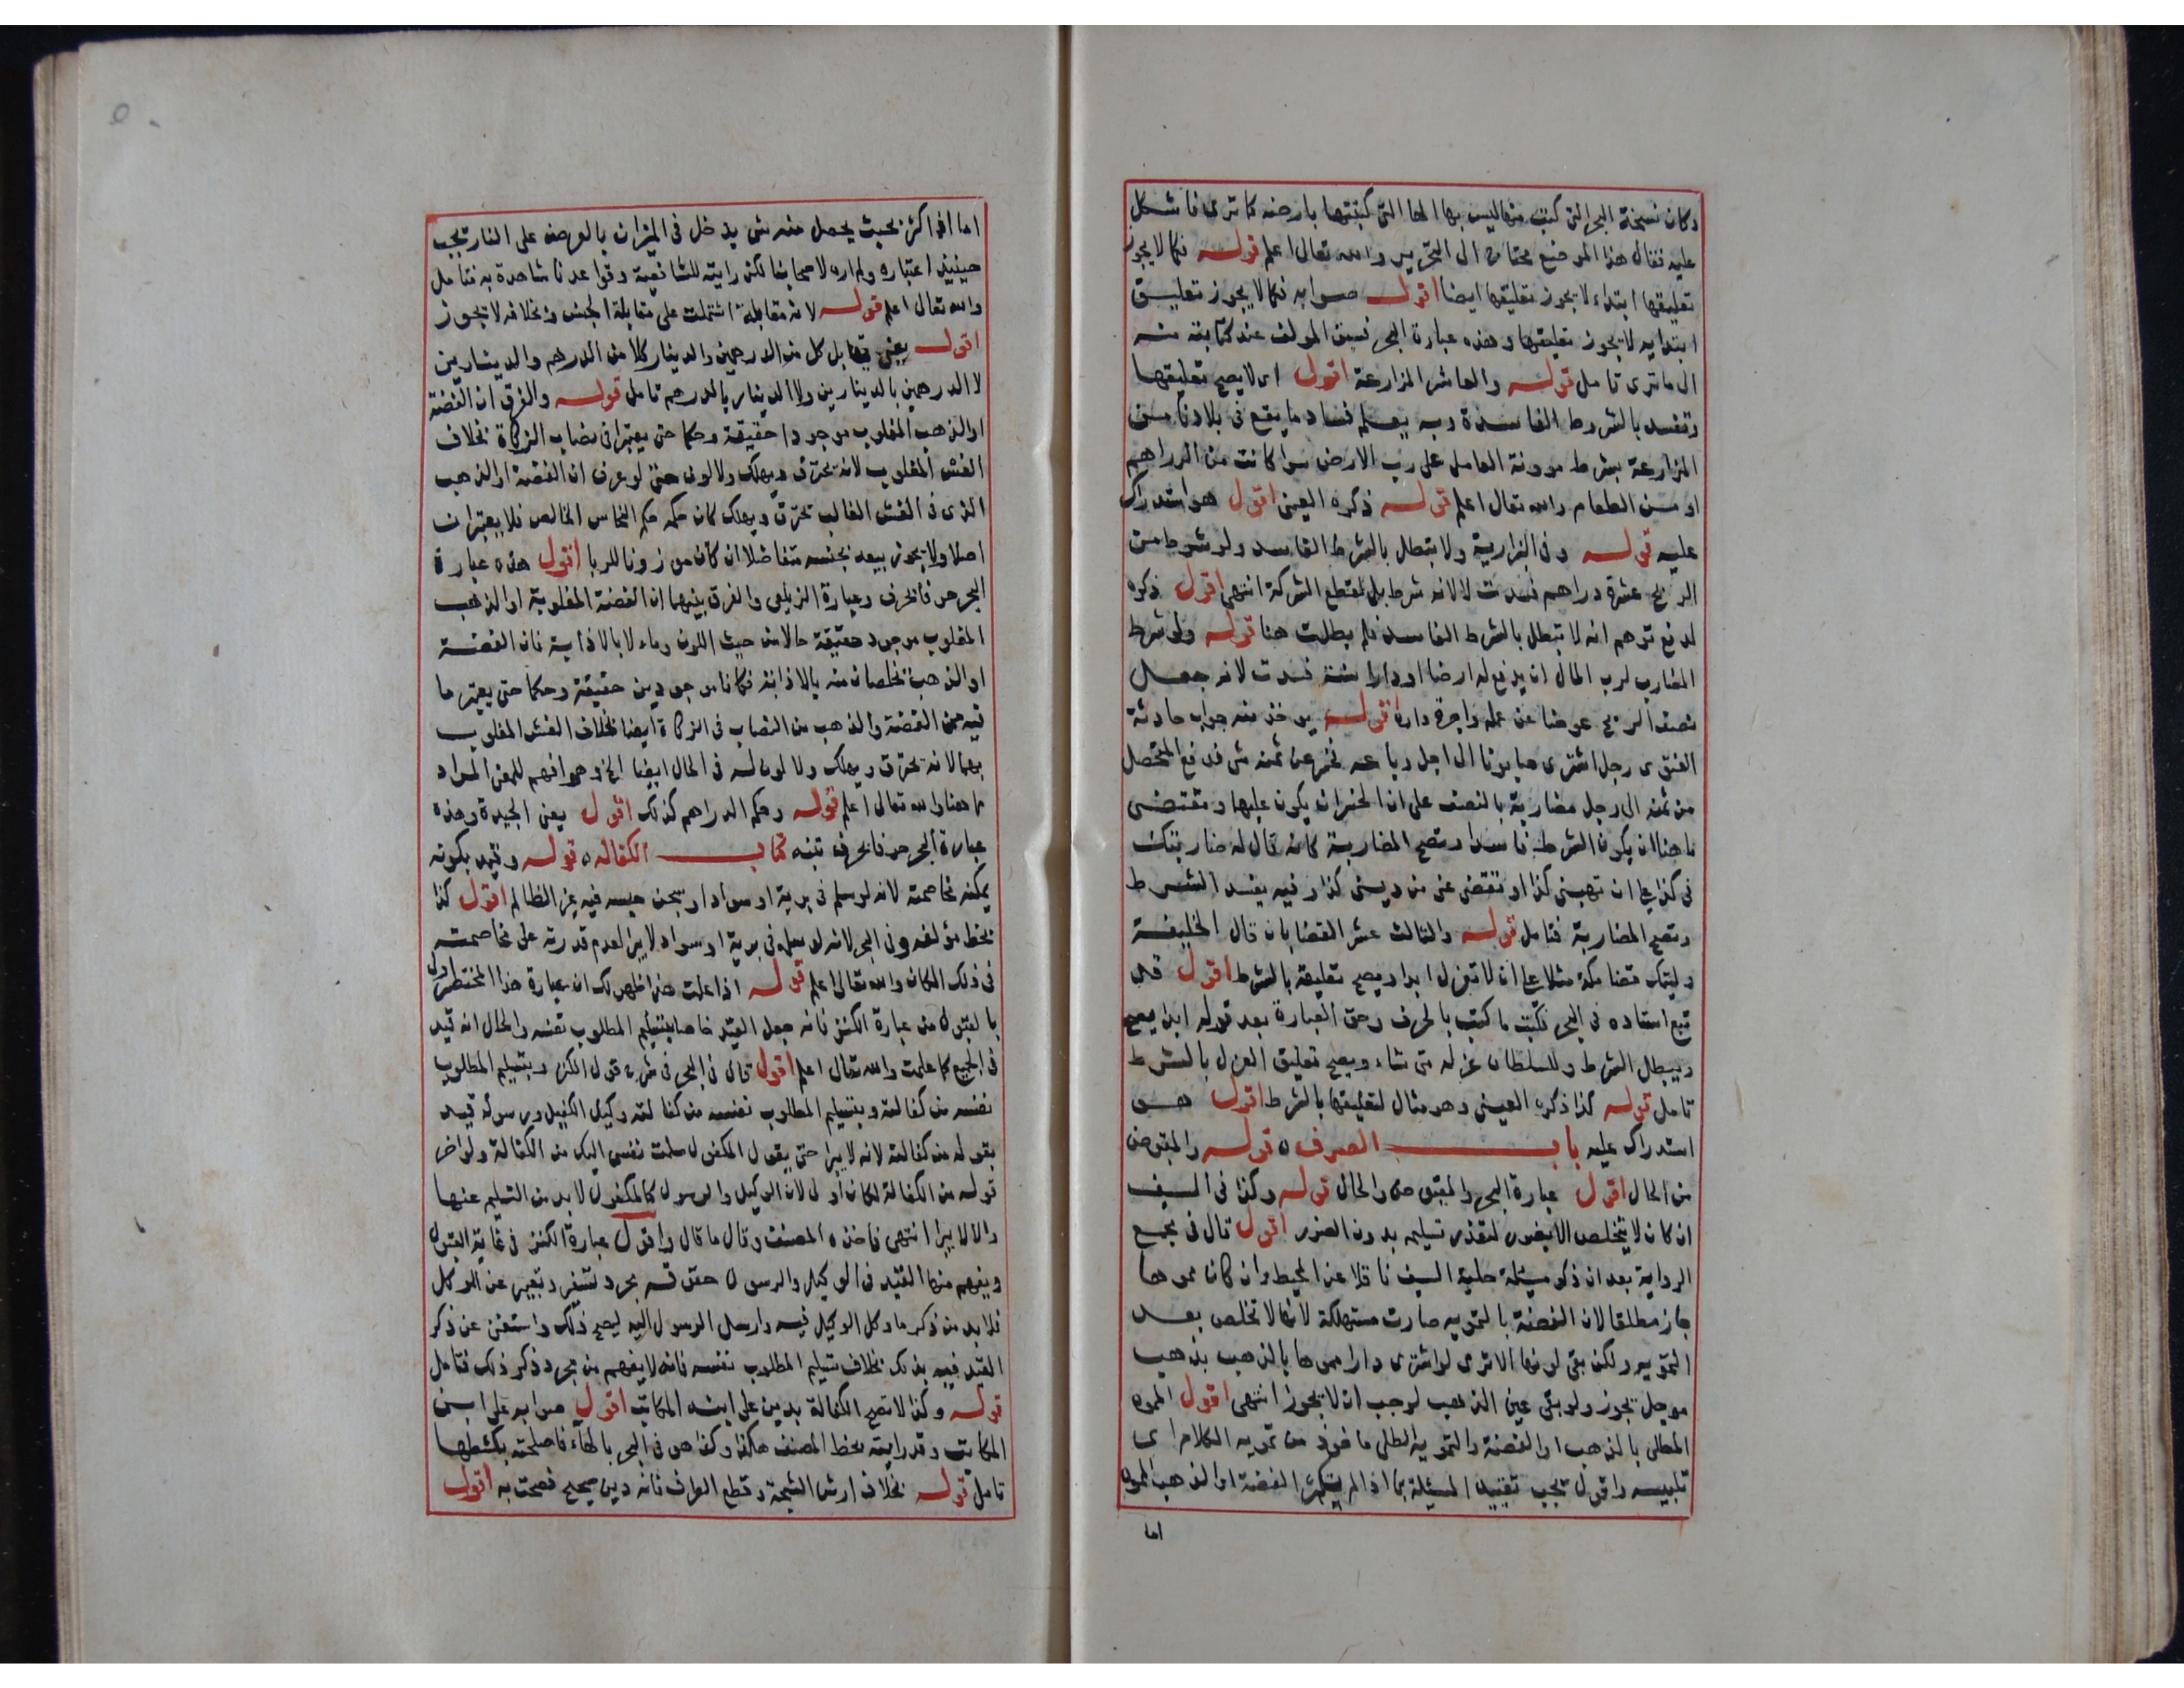 وكان نسخة البحر التي كتب منها ليس بها الها التي كتبتها بارضه كما ترى فاشكل
عليه فقال هذا الموضع محتاج الى التحرير والله تعالى اعلم قوله فكما لا يجوز
تعليقها ابتداء لا يجوز تعليقها ايضا اقول صوابه فكما لا يجوز تعليق
ابتدايه لا يجوز تعليقها وهذه عبارة البحر فسبق المولف عند كتابته منه
الى ما ترى تامل قوله والعاشر المزارعة اقول اى لا يصح تعليقها
وتفسد بالشروط الفاسدة وبه يعلم فساد ما يقع فى بلادنا من
المزارعة بشرط مونة العامل على رب الارض سوا كانت من الدراهم
او من الطعام والله تعالى اعلم قوله ذكره العينى اقول هو استدراك
عليه قوله وفى البزازية ولا يبطل بالشرط الفاسد ولو شرط من
الربح عشرة دراهم فسدت لا لانه شرط بل لقطع الشركة انتهى اقول ذكره
لدفع توهم انه لا تبطل بالشرط الفاسد فلم بطلت هنا قوله ولو شرط
المضارب لرب المال ان يدفع له ارضا او دارا سنة فسدت لانه جعل
نصف الربح عوضا عن عمله واجرة داره اقول يوخذ منه جواب حادثة
الفتوى رجل اشترى صابونا الى اجل وباعه عن ثمنه شى فدفع المتحصل
من ثمنه الى رجل مضاربة بالنصف على ان الخسران يكون عليها ومقتضى
ما هنا ان يكون الشرط فاسدا وتصح المضاربة كانه قال له ضاربتك
فى كذا على ان تهبنى كذا او تقضى عنى من دينى كذا وفيه يفسد الشرط
وتصح المضاربة فتامل قوله والثالث عشر القضا بان قال الخليفة
وليتك قضا مكة مثلا على ان لا تعزل ابدا ويصح تعليقه بالشرط اقول قد
تبع استاده فى البحر فكتبت ما كتب بالحرف وحق العبارة بعد قوله ابدا يصح
ويبطل الشرط وللسلطان عزله متى شاء ويصح تعليق العزل بالشرط
تامل قوله كذا ذكره العينى وهو مثال لتعليقها بالشرط اقول هو
استدراك عليه باب الصرف ٥ قوله والمقبوض
من الحال اقول عبارة البحر والمقبوض والحال قوله وكذا فى السيف
ان كان لا يتخلص الا بضرر لتعذر تسليمه بدون الضرر اقول قال فى مجمع
الرواية بعد ان ذكر مسئلة حلية السيف ناقلا عن المحيط وان كان مموها
جاز مطلقا لان الفضة بالتمويه صارت مستهلكة لانها لا تخلص بعد
التمويه ولكن بقى لونها الا ترى لو اشترى دارا مموها بالذهب بذهب
موجل يجوز ولو بقى عين الذهب لوجب ان لا يجوز انتهى اقول المموه
المطلى بالذهب او الفضة والتمويه الطلى ماخوذ من تمويه الكلام اى
تلبيسه واقول يجب تقييد المسئلة بما اذا لم يكثر الفضة او الذهب المموه
اما
اما اذا كثر بحيث يحصل منه شى يدخل فى الميزان بالعرض على النار يجب
حينيذ اعتباره ولم اره لاصحابنا لكن رايته للشافعية وقواعدنا شاهدة به فتامل
والله تعالى اعلم قوله لانه مقابلة اشتملت على مقابلة الجنس وبخلافه لا تجوز
اقول يعنى يقابل كل من الدرهمين والدينار كلا من الدرهم والدينارين
لا الدرهمين بالدينارين ولا الدينار بالدرهم تامل قوله والفرق ان الفضة
او الذهب المغلوب موجودا حقيقة وحكما حتى يعتبر فى نصاب الزكاة بخلاف
الغش المغلوب لانه يحترق ويهلك ولا لون حتى لو عرف ان الفضة او الذهب
الذى فى الغش الغالب تحترق ويهلك كان حكمه حكم النحاس الخالص فلا يعتبران
اصلا ولا يجوز بيعه بجنسه متفاضلا ان كان موزونا للربا اقول هذه عبارة
البحر حرفا بحرف وعبارة الزيلعى والفرق بينهما ان الفضة المغلوبة او الذهب
المغلوب موجود حقيقة حالا من حيث اللون وماء لا بالاذابة فان الفضة
او الذهب تخلصان منه بالاذابة فكانا موجودين حقيقة وحكما حتى يعتبر ما
فيه من الفضة والذهب من النصاب فى الزكاة ايضا بخلاف الغش المغلوب
بهما لانه يحترق ويهلك ولا لون له فى الحال ايضا الخ وهو افهم للمعنى المراد
ما هنا والله تعالى اعلم قوله وحكم الدراهم كذلك اقول يعنى الجيدة وهذه
عبارة البحر حرفا بحرف تنبه كتاب الكفالة ٥ قوله وقيد بكونه
يمكنه مخاصمته لانه لو سلم فى برية او سواد او سجن حبسه فيه غير الظالم اقول كذا
بخط مؤلفه وفى البحر لانه لو سلمه فى برية او سواد لا يبرا لعدم قدرته على مخاصمته
فى ذلك المكان والله تعالى اعلم قوله اذا علمت هذا ظهر لك ان عبارة هذا المختصر اولى
بالقبول من عبارة الكنز فانه جعل القيد خاصا بتسليم المطلوب نفسه والحال انه قيد
فى الجميع كما علمت والله تعالى اعلم اقول قال فى البحر فى شرح قول الكنز وبتسليم المطلوب
نفسه من كفالته وبتسليم المطلوب نفسه من كفالته وكيل الكفيل ورسوله قيد
بقوله من كفالته لانه لا يبرا حتى يقول المكفول سلمت نفسى اليك من الكفالة ولو اخر
قوله من الكفالة لكان اولى لان الوكيل والرسول كالمكفول لا بد من التسليم عنها
والا لا يبرا انتهى فاخذه المصنف وقال ما قال واقول عبارة الكنز فى غاية القبول
ويفهم منها القيد فى الوكيل والرسول بمجرد وتعبير عن الوكل
فلا بد من ذكر ما وكل الوكيل فيه وارسل الرسول اليه ليصح ذلك واستغنى عن ذكر
القيد فيه بذلك بخلاف تسليم المطلوب نفسه فانه لا يفهم من مجرد ذكر ذلك فتامل
قوله وكذا لا تصح الكفالة بدين على ابنه المكاتب اقول صوابه على ابنى
المكاتب وقد رايته بخط المصنف هكذا وكذا هو فى البحر بالهاء فاصلحته بكشطها
تامل قوله بخلاف ارش الشجة وقطع الطرف فانه دين صحيح فصحت به اقول